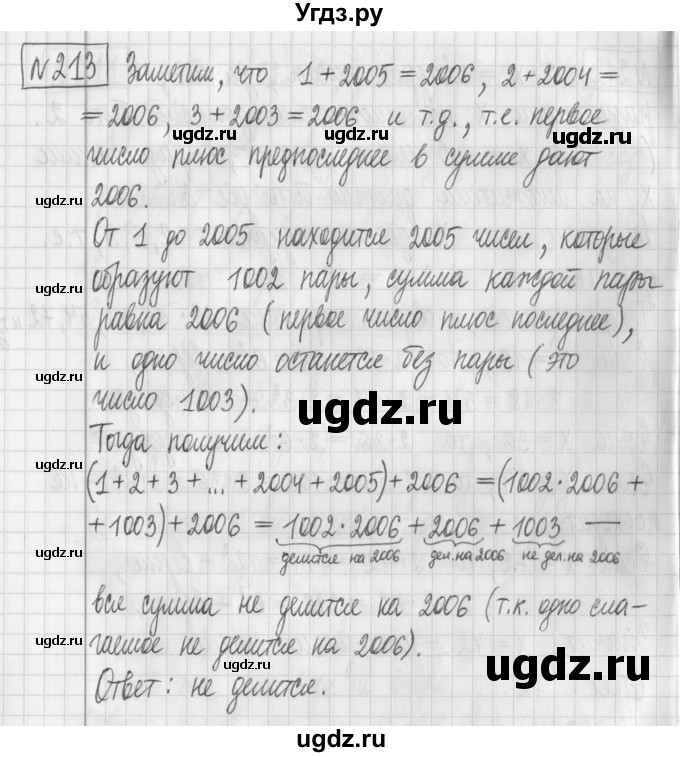 Угдз.ру
№213 Заметим, что 1+2005=2006, 2+2004=
=2006, 3+2003=2006 и т.д., т.е. первое
ugdz.ru ugdz.ru
число плюс предпоследнее в сумме дают
ugdz.ru
2006.
От 1 до 2005 находится 2005 чисел, которые
ugdz.ru ugdz.ru
образуют 1002 пары, сумма каждой пары
равна 2006 (первое число плюс последнее),
и одно число останется без пары (это
ugdz.ru
число 1003).
ugdz.ru
Тогда получим:
ugdz.ru ugdz.ru
(1+2+3+...+2004+2005)+2006 =(1002·2006+
+1003)+2006 = 1002·2006+2006+1003 —
ugdz.ru
делится на 2006 дел.на 2006 не дел.на 2006
вся сумма не делится на 2006 (т.к. одно сла-
ugdz.ru
гаемое не делится на 2006).
ugdz.ru ugdz.ru
Ответ: не делится.
ugdz.ru
ugdz.ru